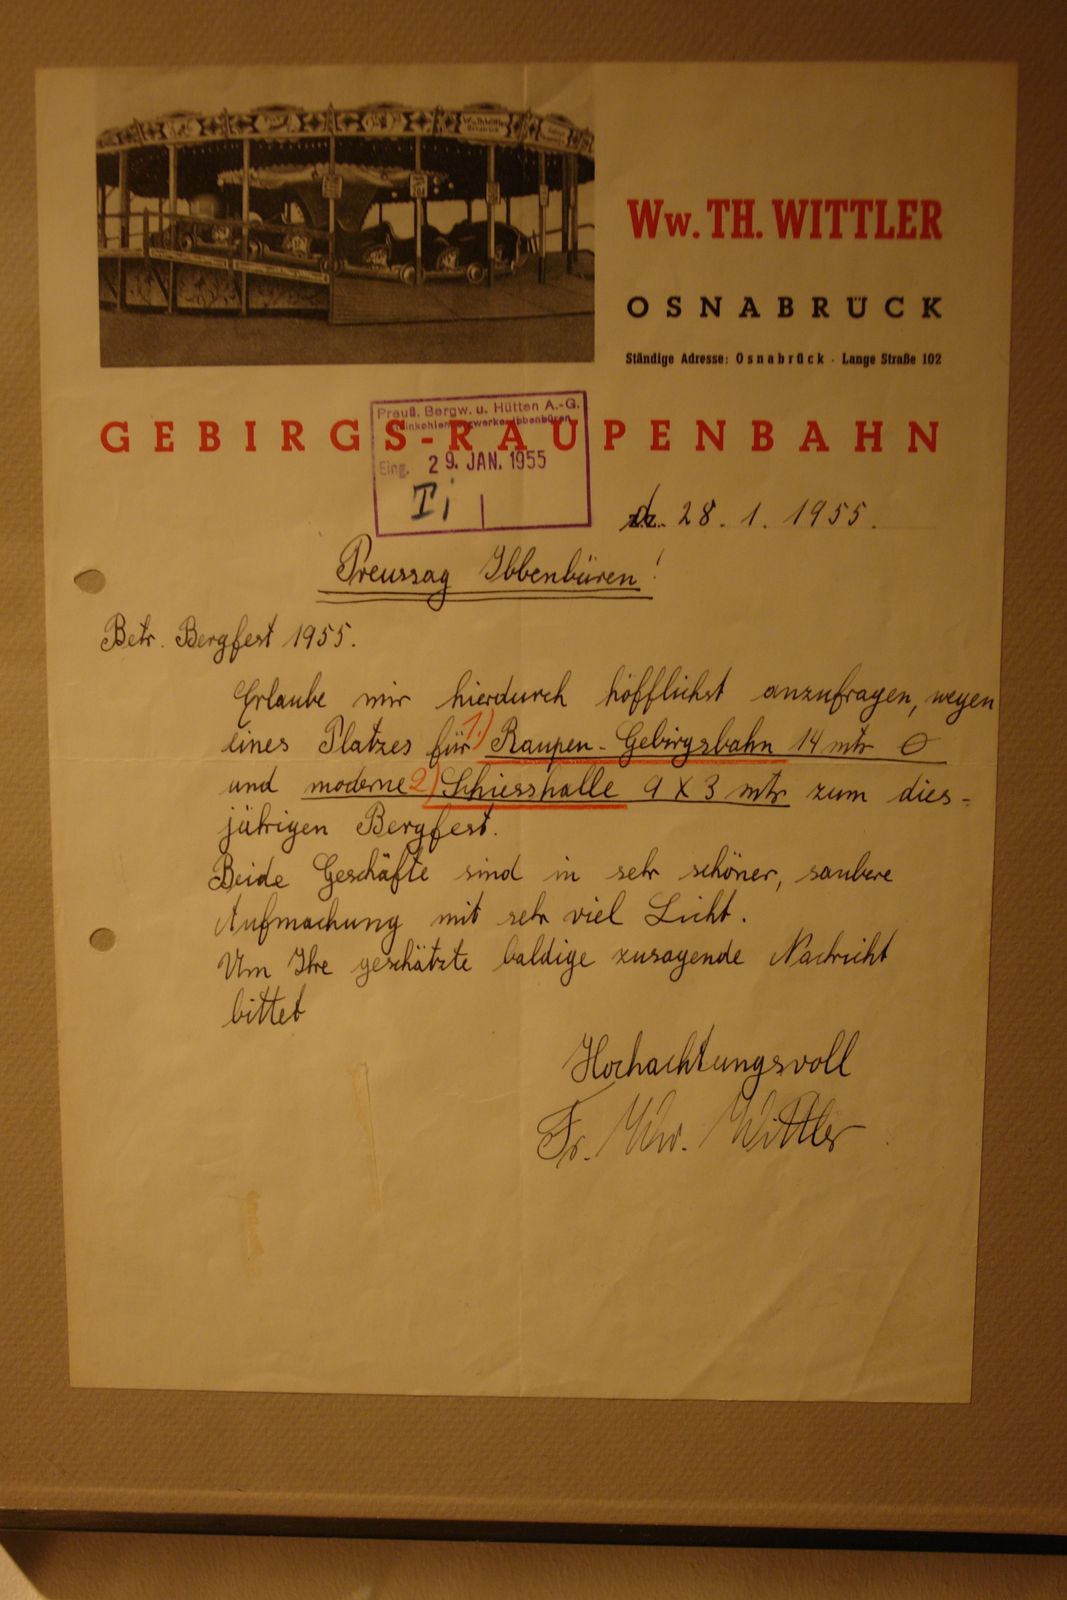 Ww. TH. WITTLER
OSNABRÜCK
Ständige Adresse: Osnabrück · Lange Straße 102
GEBIRGS-RAUPENBAHN
Preuß. Bergw. u. Hütten A.-G.
Steinkohlenbergwerke Ibbenbüren
Eing. 29. JAN. 1955
d. 28. 1. 1955.
Preussag Ibbenbüren!
Betr. Bergfest 1955.
Erlaube mir hierdurch höfflichst anzufragen, wegen
eines Platzes für 1.) Raupen-Gebirgsbahn 14 mtr ∅
und moderne 2) Schiesshalle 9 X 3 mtr zum dies-
jährigen Bergfest.
Beide Geschäfte sind in sehr schöner, saubere
Aufmachung mit sehr viel Licht.
Um Ihre geschätzte baldige zusagende Nachricht
bittet
Hochachtungsvoll
Fr. Ww. Wittler